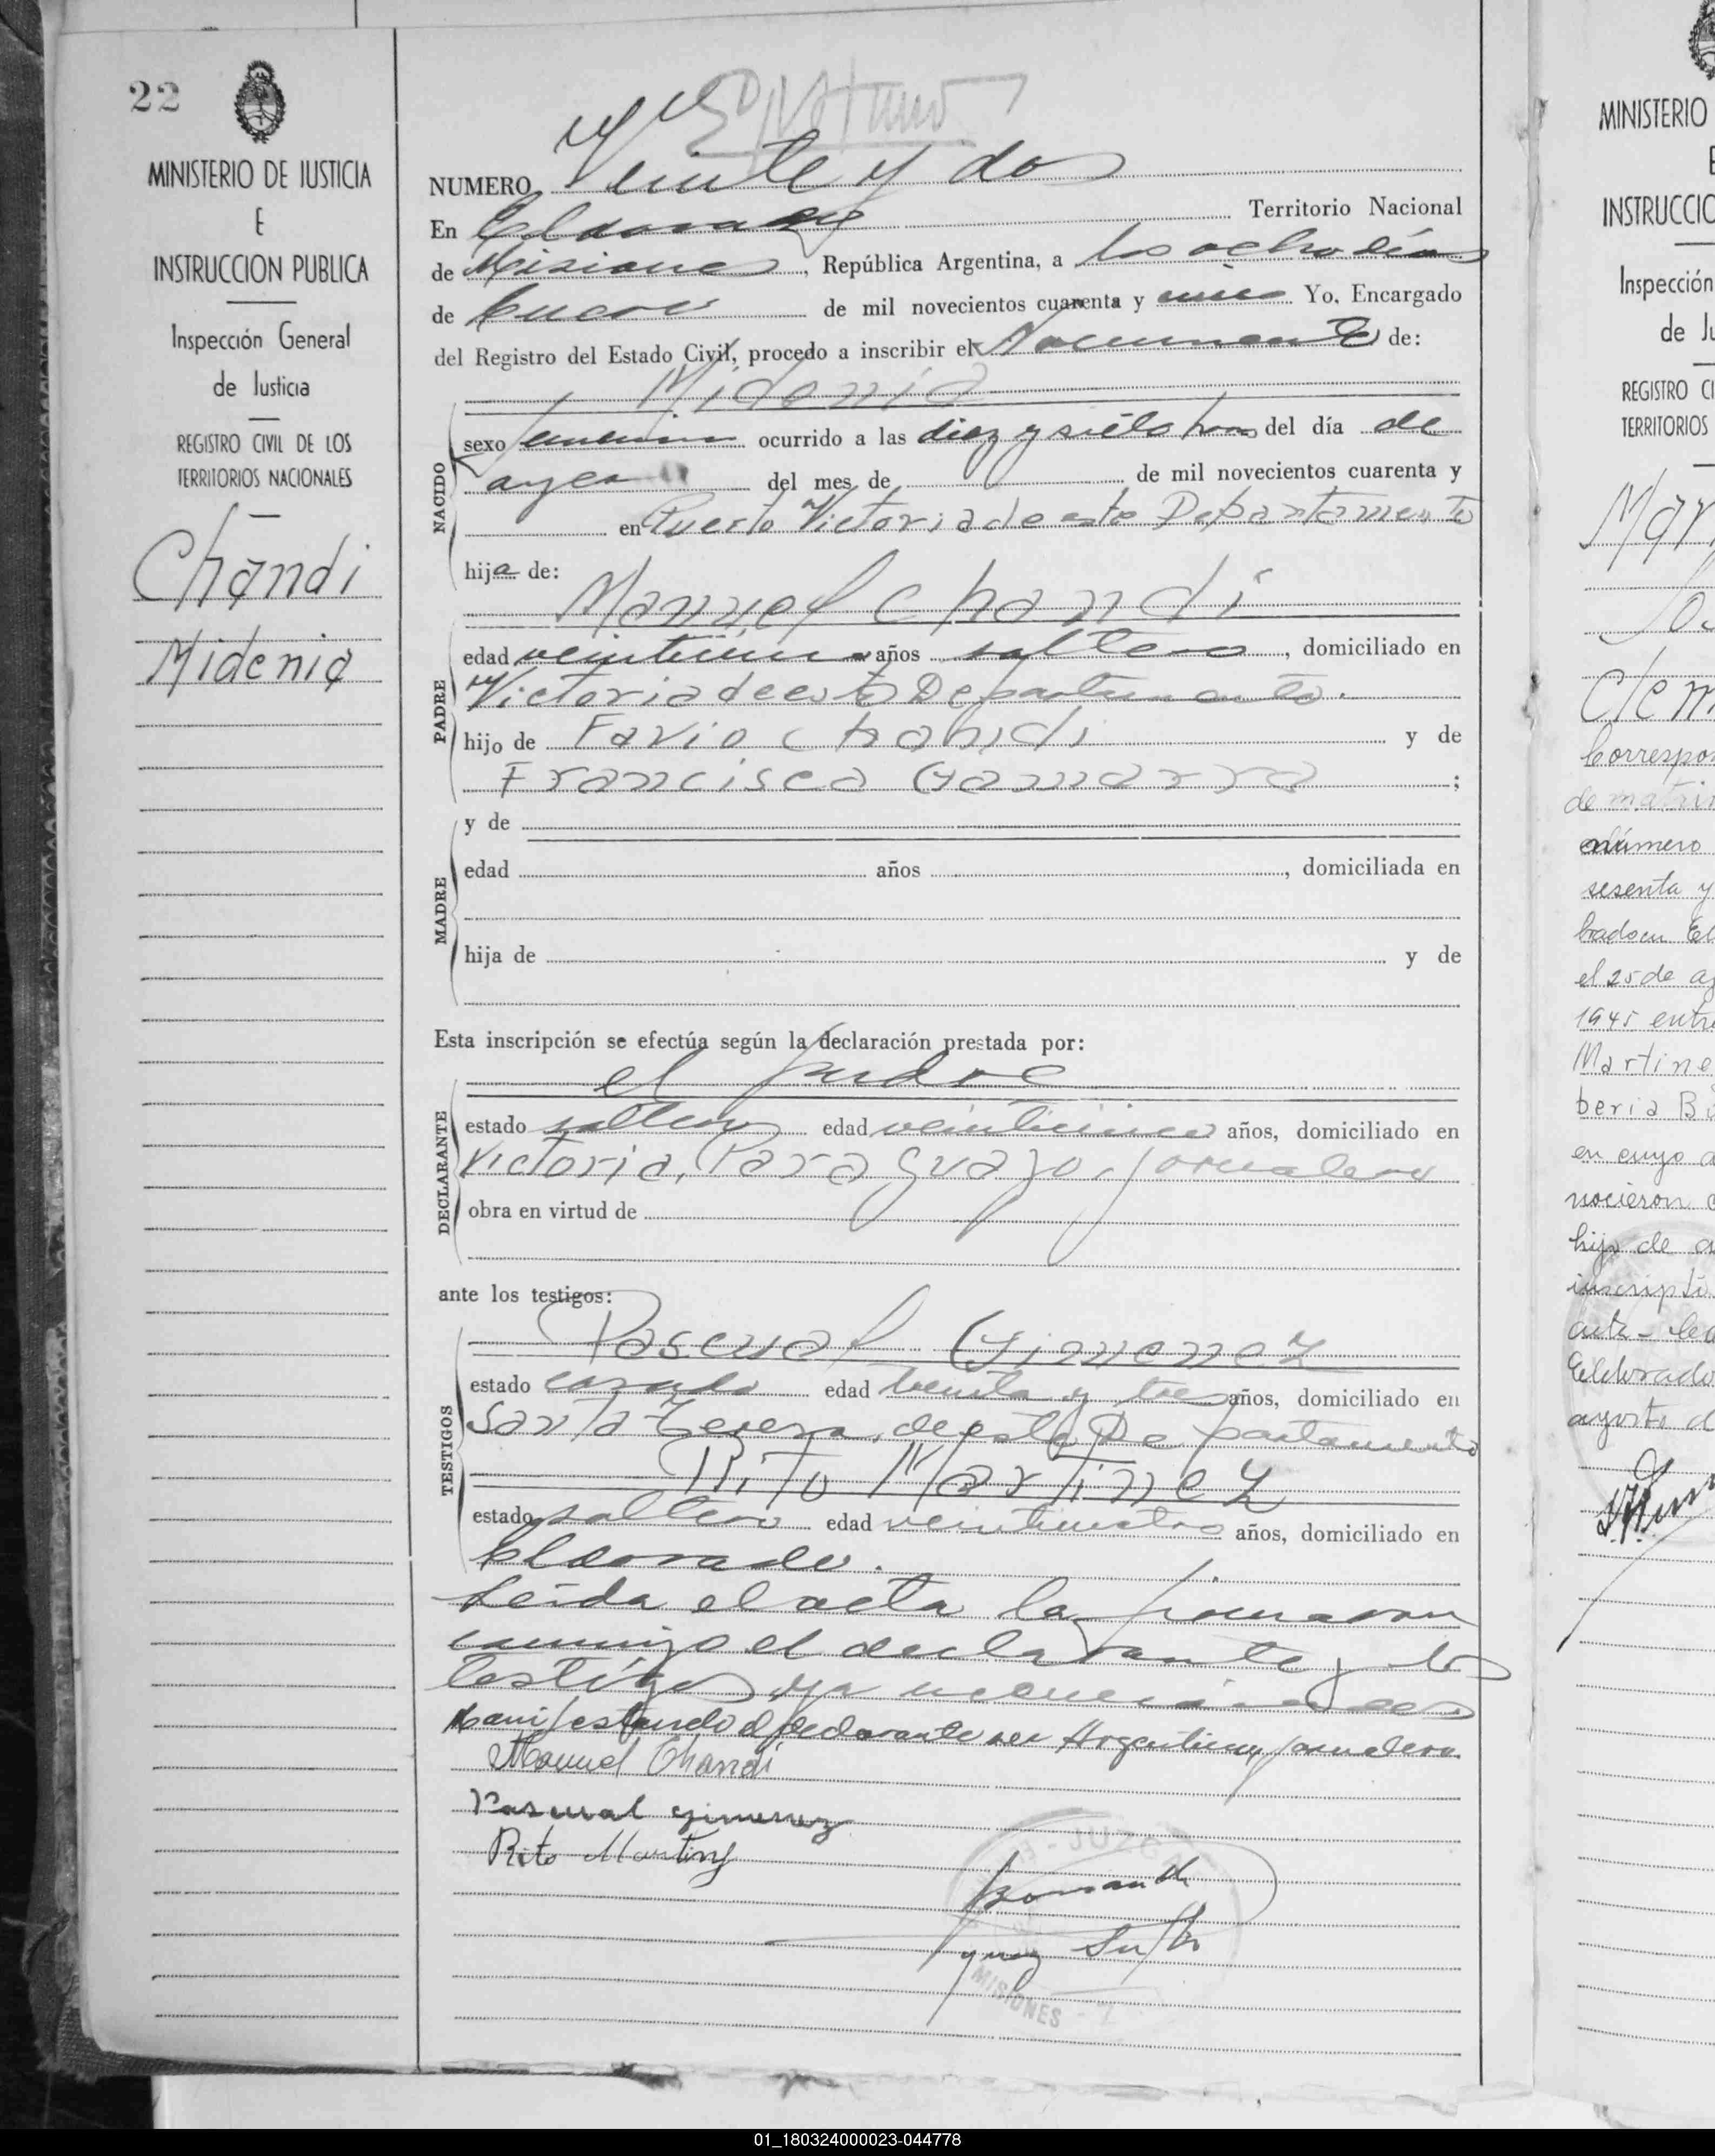 22
MINISTERIO DE JUSTICIA
E
INSTRUCCION PUBLICA
Inspección General
de Justicia
REGISTRO CIVIL DE LOS
TERRITORIOS NACIONALES
Chandi
Midenia
NUMERO Veinte y dos
En Eldorado Territorio Nacional
de Misiones, República Argentina, a los ocho días
de Enero de mil novecientos cuarenta y uno Yo, Encargado
del Registro del Estado Civil, procedo a inscribir el Nacimiento de:
Midenia
NACIDO
sexo femenino ocurrido a las diez y siete horas del día de
ayer del mes de de mil novecientos cuarenta y
en Puerto Victoria de este Departamento
hija de:
Manuel Chandi
PADRE
edad veinticinco años soltero, domiciliado en
Victoria de este Departamento.
hijo de Favio Chandi y de
Francisca Gamarra;
MADRE
y de
edad años, domiciliada en
hija de y de
Esta inscripción se efectúa según la declaración prestada por:
el padre
DECLARANTE
estado soltero edad veinticinco años, domiciliado en
Victoria, Paraguayo, jornalero
obra en virtud de
ante los testigos:
Pascual Gimenez
TESTIGOS
estado casado edad treinta y tres años, domiciliado en
Santa Teresa, de este Departamento
Rito Martinez
estado soltero edad veinticuatro años, domiciliado en
Eldorado.
Leída el acta la firmaron
conmigo el declarante y los
testigos ya mencionados
Manifestando el declarante ser Argentino, jornalero
Manuel Chandi
Pascual Gimenez
Rito Martinez
JUZGADO
MISIONES
MINISTERIO
E
INSTRUCCIO
Inspección
de Ju
REGISTRO CI
TERRITORIOS
Mar
Clem
Correspon
de matrim
número
sesenta y
brado en El
el 25 de ag
1945 entre
Martine
beria B
en cuyo a
nocieron
hijo de
inscripto
Eldorado
agosto d
01_180324000023-044778